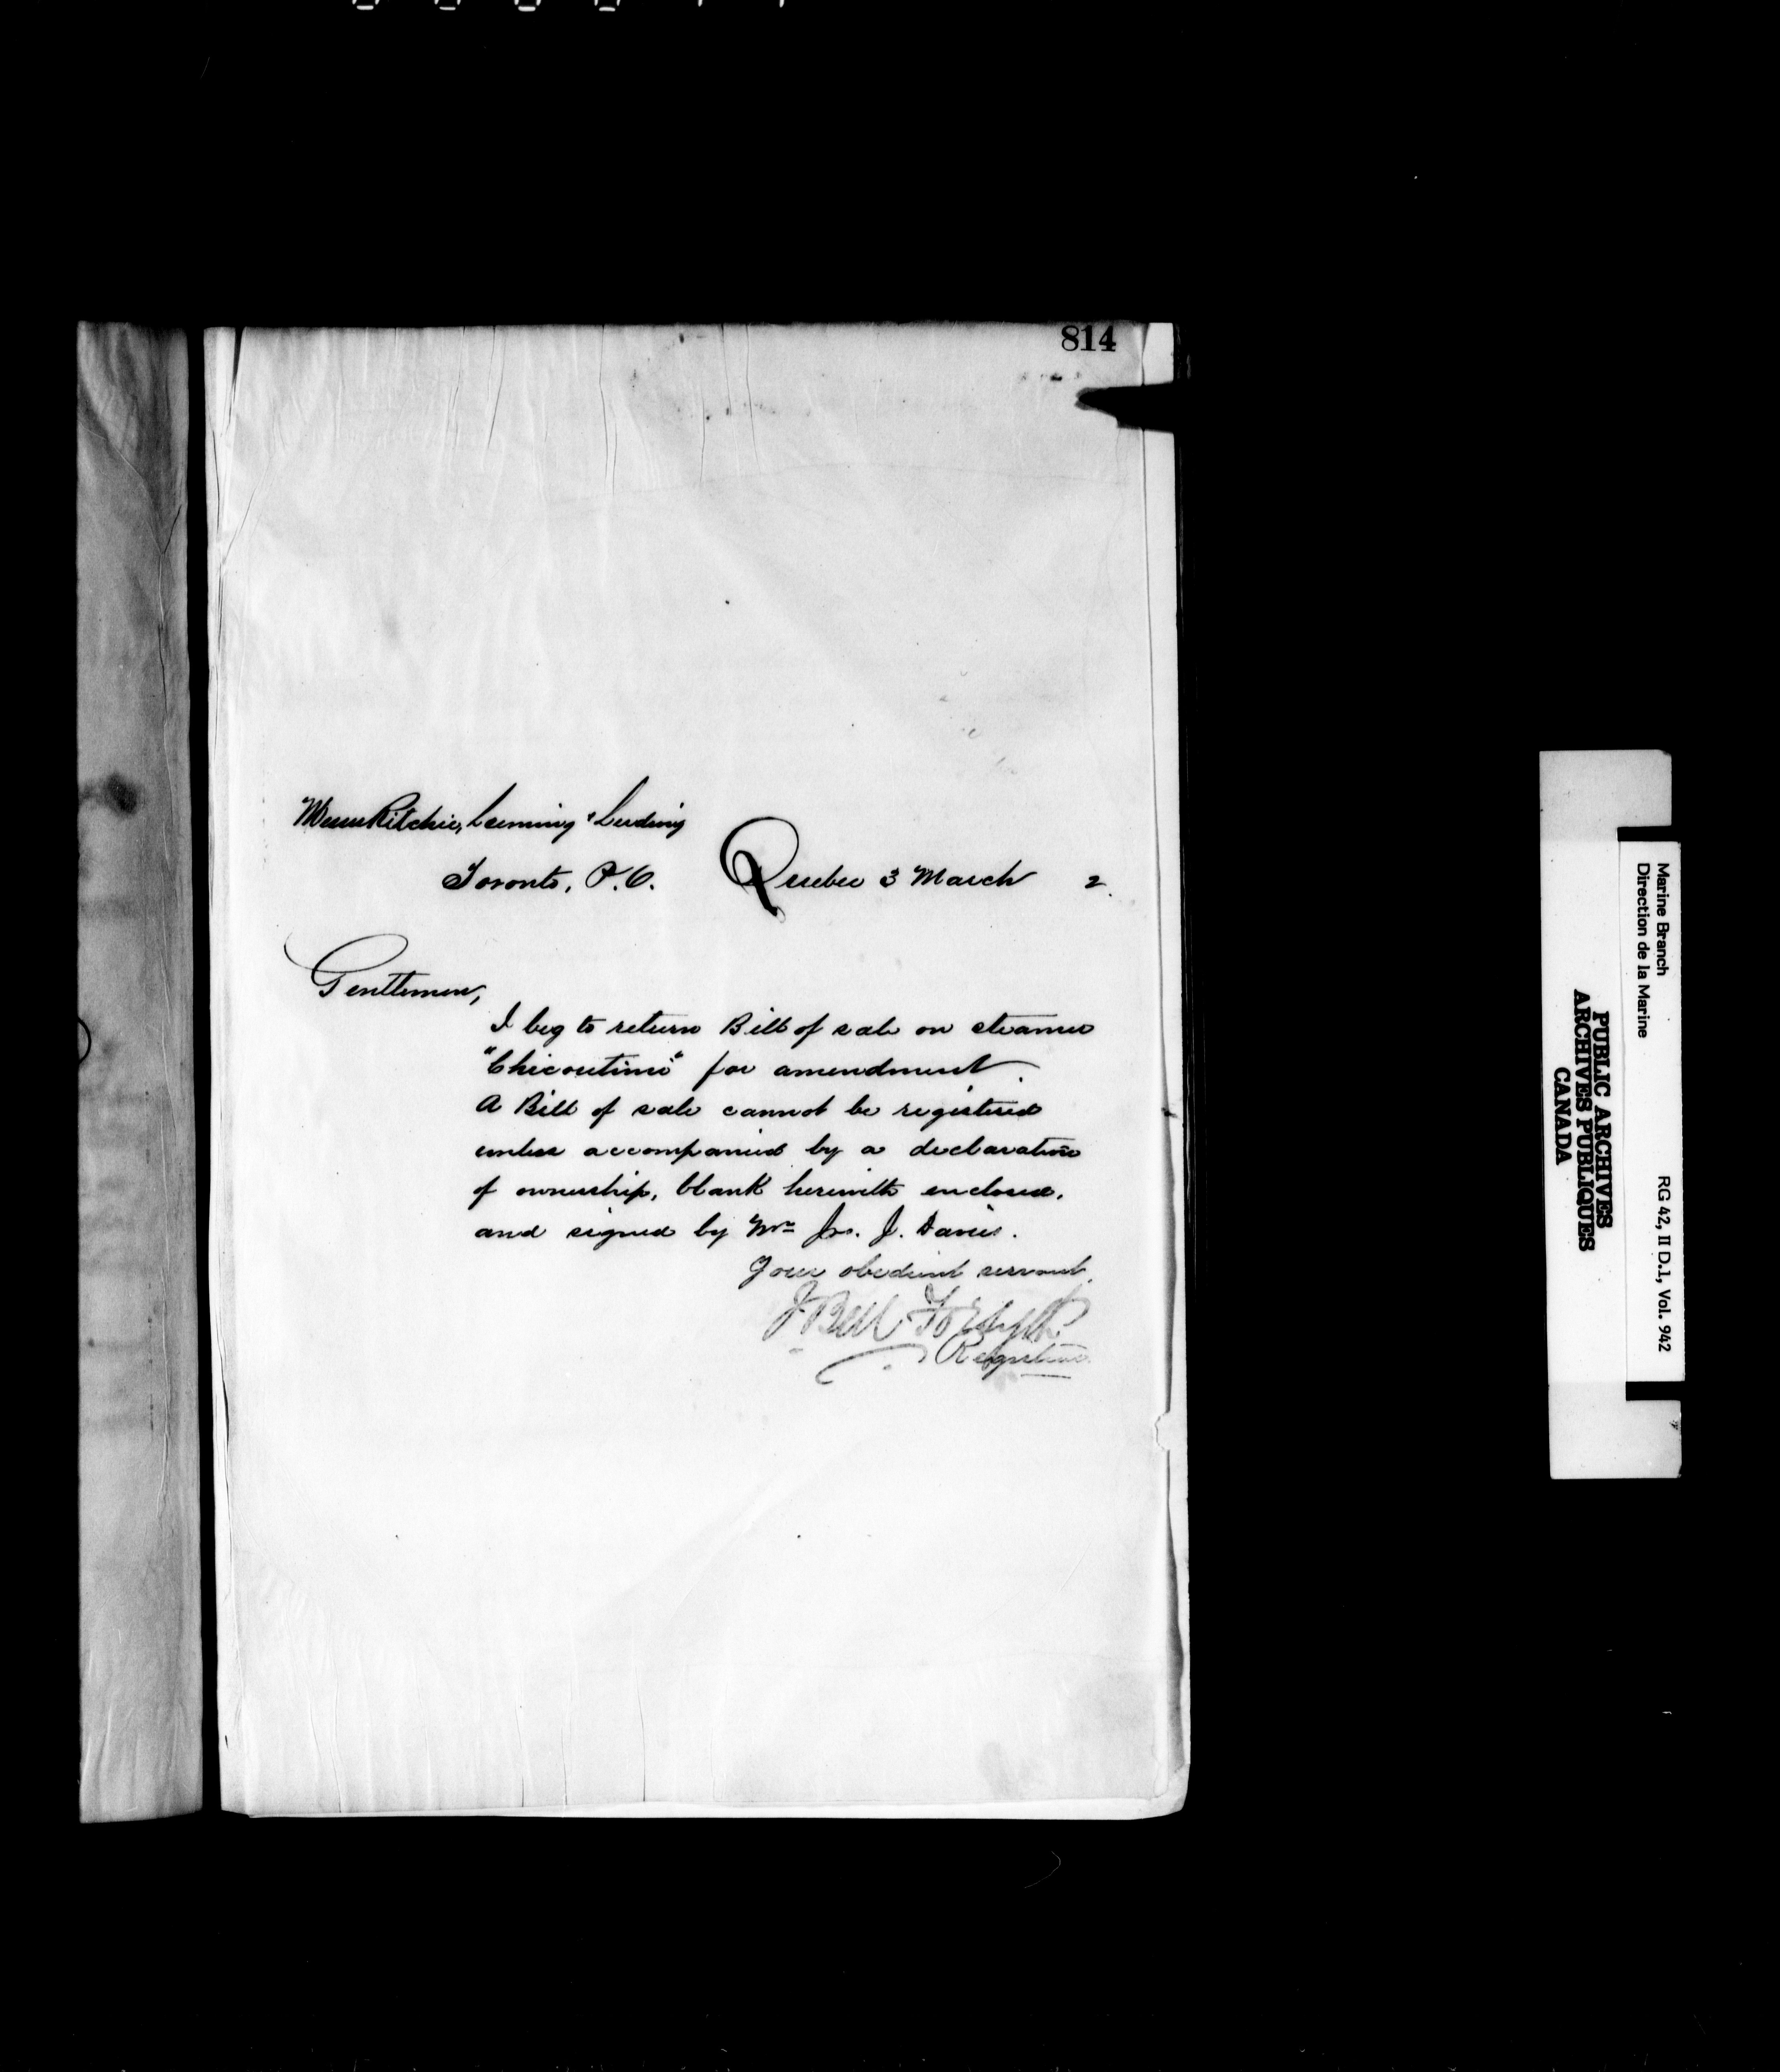 814
Messrs Ritchie, Leeming & Luding
Toronto, P.O. Quebec 3 March 2.
Gentlemen,
I beg to return Bill of sale on steamer
"Chicoutimi" for amendment.
A Bill of sale cannot be registered
unless accompanied by a declaration
of ownership, blank herewith enclosed,
and signed by Mr Jno. J. Davis.
Your obedient servant,
J Bell Forsyth
Registrar
Marine Branch
Direction de la Marine
RG 42, II D.1, Vol. 942
PUBLIC ARCHIVES
ARCHIVES PUBLIQUES
CANADA